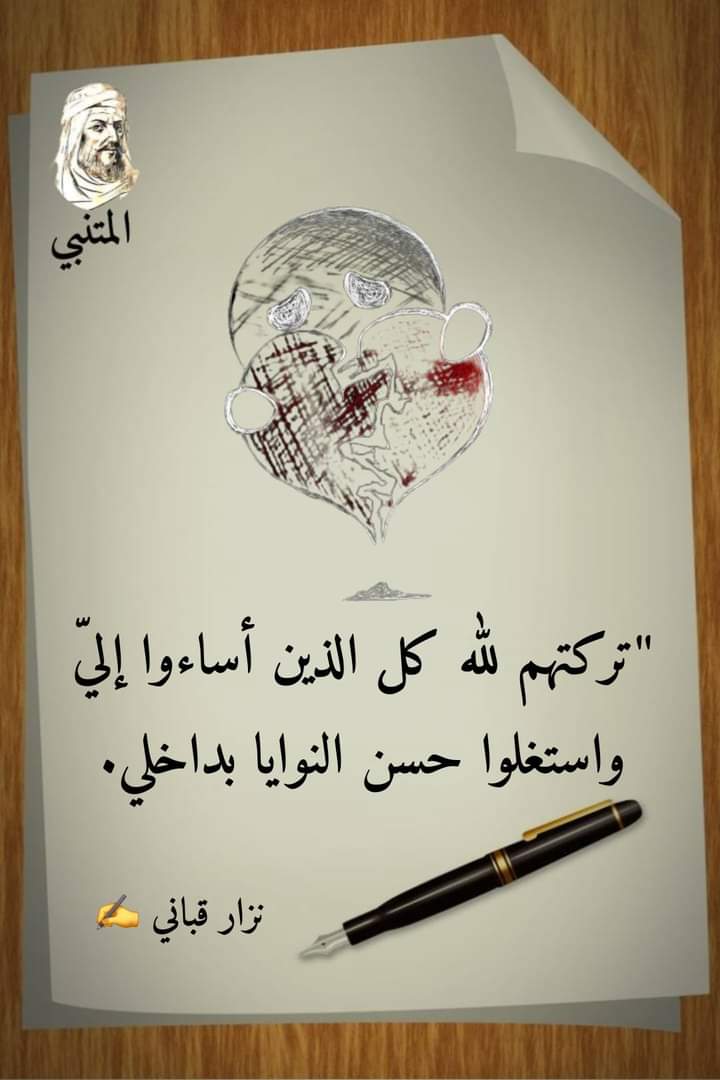 المتنبي
"تركتهم لله كل الذين أساءوا إليّ
واستغلوا حسن النوايا بداخلي.
نزار قباني ✍️